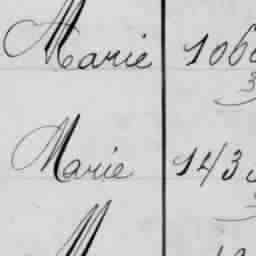 Marie 106
3
Marie 143
M